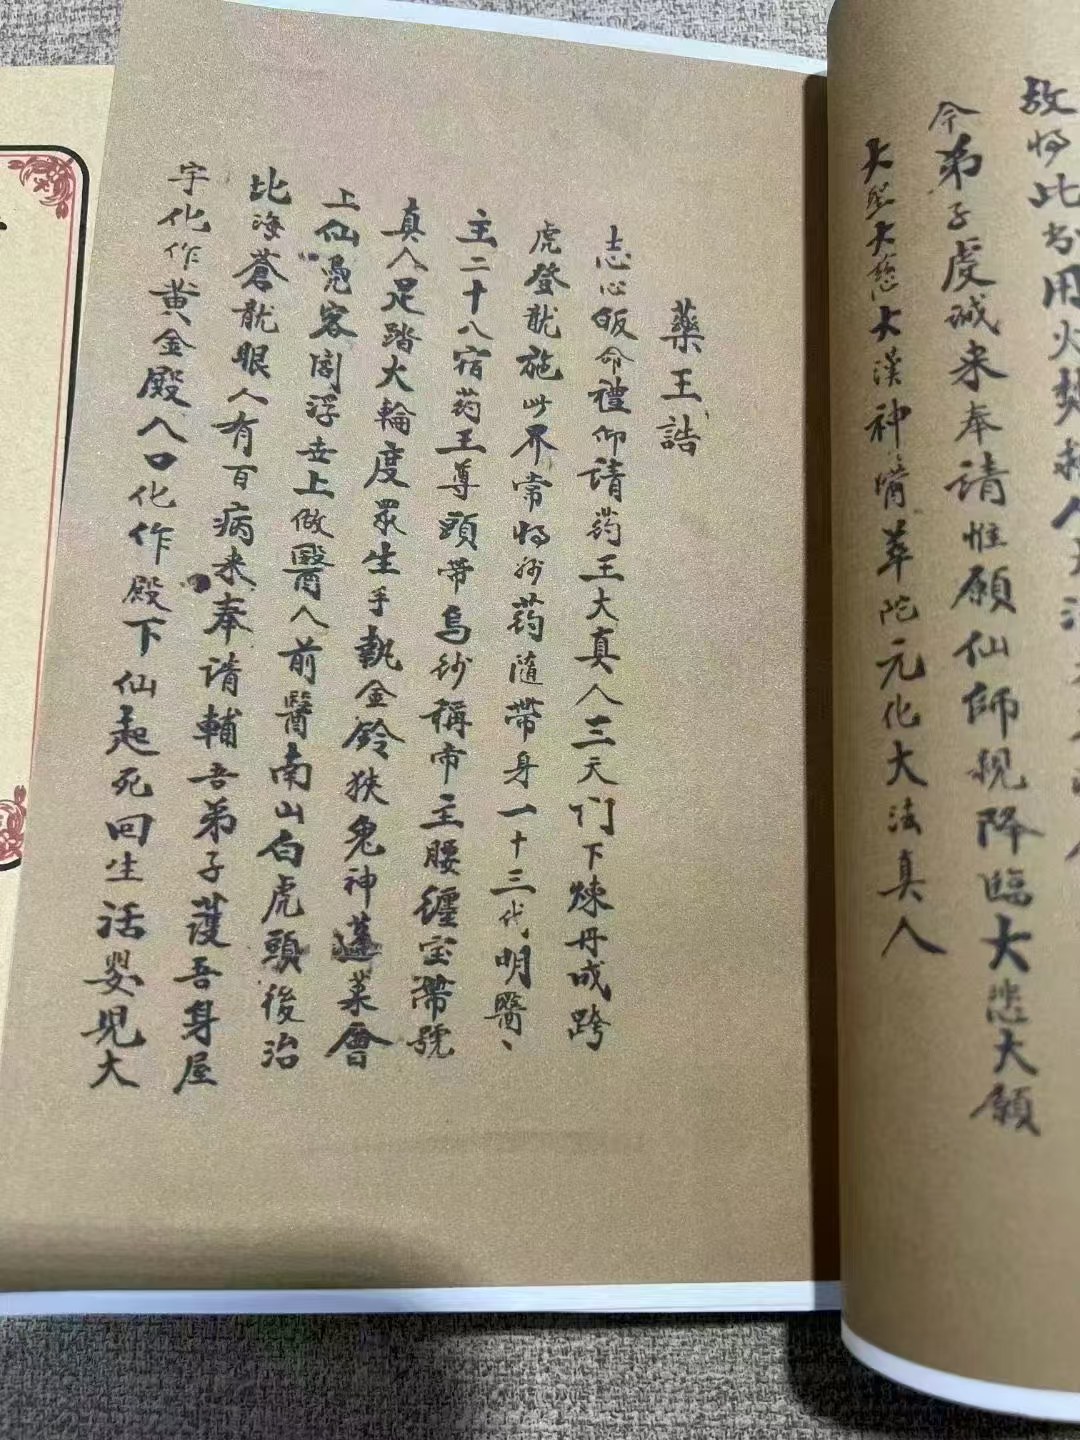 故將此書用火焚
今弟子虔誠来奉請惟願仙師親降臨大悲大願
大聖大慈大漢神醫華陀元化大法真人
藥王誥
志心皈命禮仰请药王大真人三天门下煉丹成跨
虎登龍施世界常將妙药隨帶身一十三代明醫、
主二十八宿药王尊頭带烏纱稱帝主腰纏宝帶號
真人足踏火輪度眾生手執金鈴狹鬼神蓬萊會
上仙兔客閻浮世上做醫人前醫南山白虎頭後治
比海蒼龍眼人有百病来奉请輔吾弟子護吾身屋
宇化作黄金殿人口化作殿下仙起死回生活嬰児大